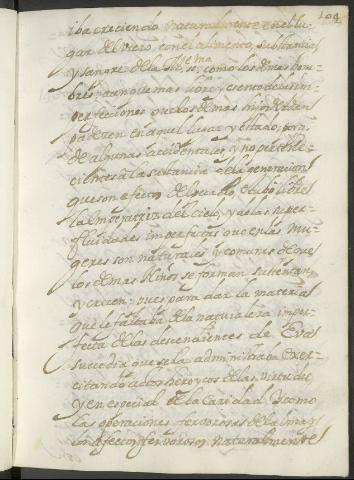 104
iba creciendo naturalmente en el lu-
gar del utero, con el alimento, substancia,
y sangre de la Reyna SS.ª, como los demas hom-
bres, aunque mas libre y esento de las im-
perfecciones que los demas hijos de Adan
padecen en aquel lugar y estado, porq
de algunas accidentales, y no pertene-
cientes a la sustancia de la generacion
que son efectos del pecado, estubo libre
la Emperatriz del Cielo, y de las super-
fluidades imperfectas que en las mu-
geres son naturales y comunes de que
los demas Niños se forman, sustentan,
y crecen: pues para dar la materia
que le faltaba de la naturaleza imper-
fecta de las descendientes de Eva
sucedia que se la administraba exer-
citando actos heroycos de las virtudes
y en especial de la caridad; y como
las operaciones fervorosas de el alma y
los afectos fervorosos naturalmente